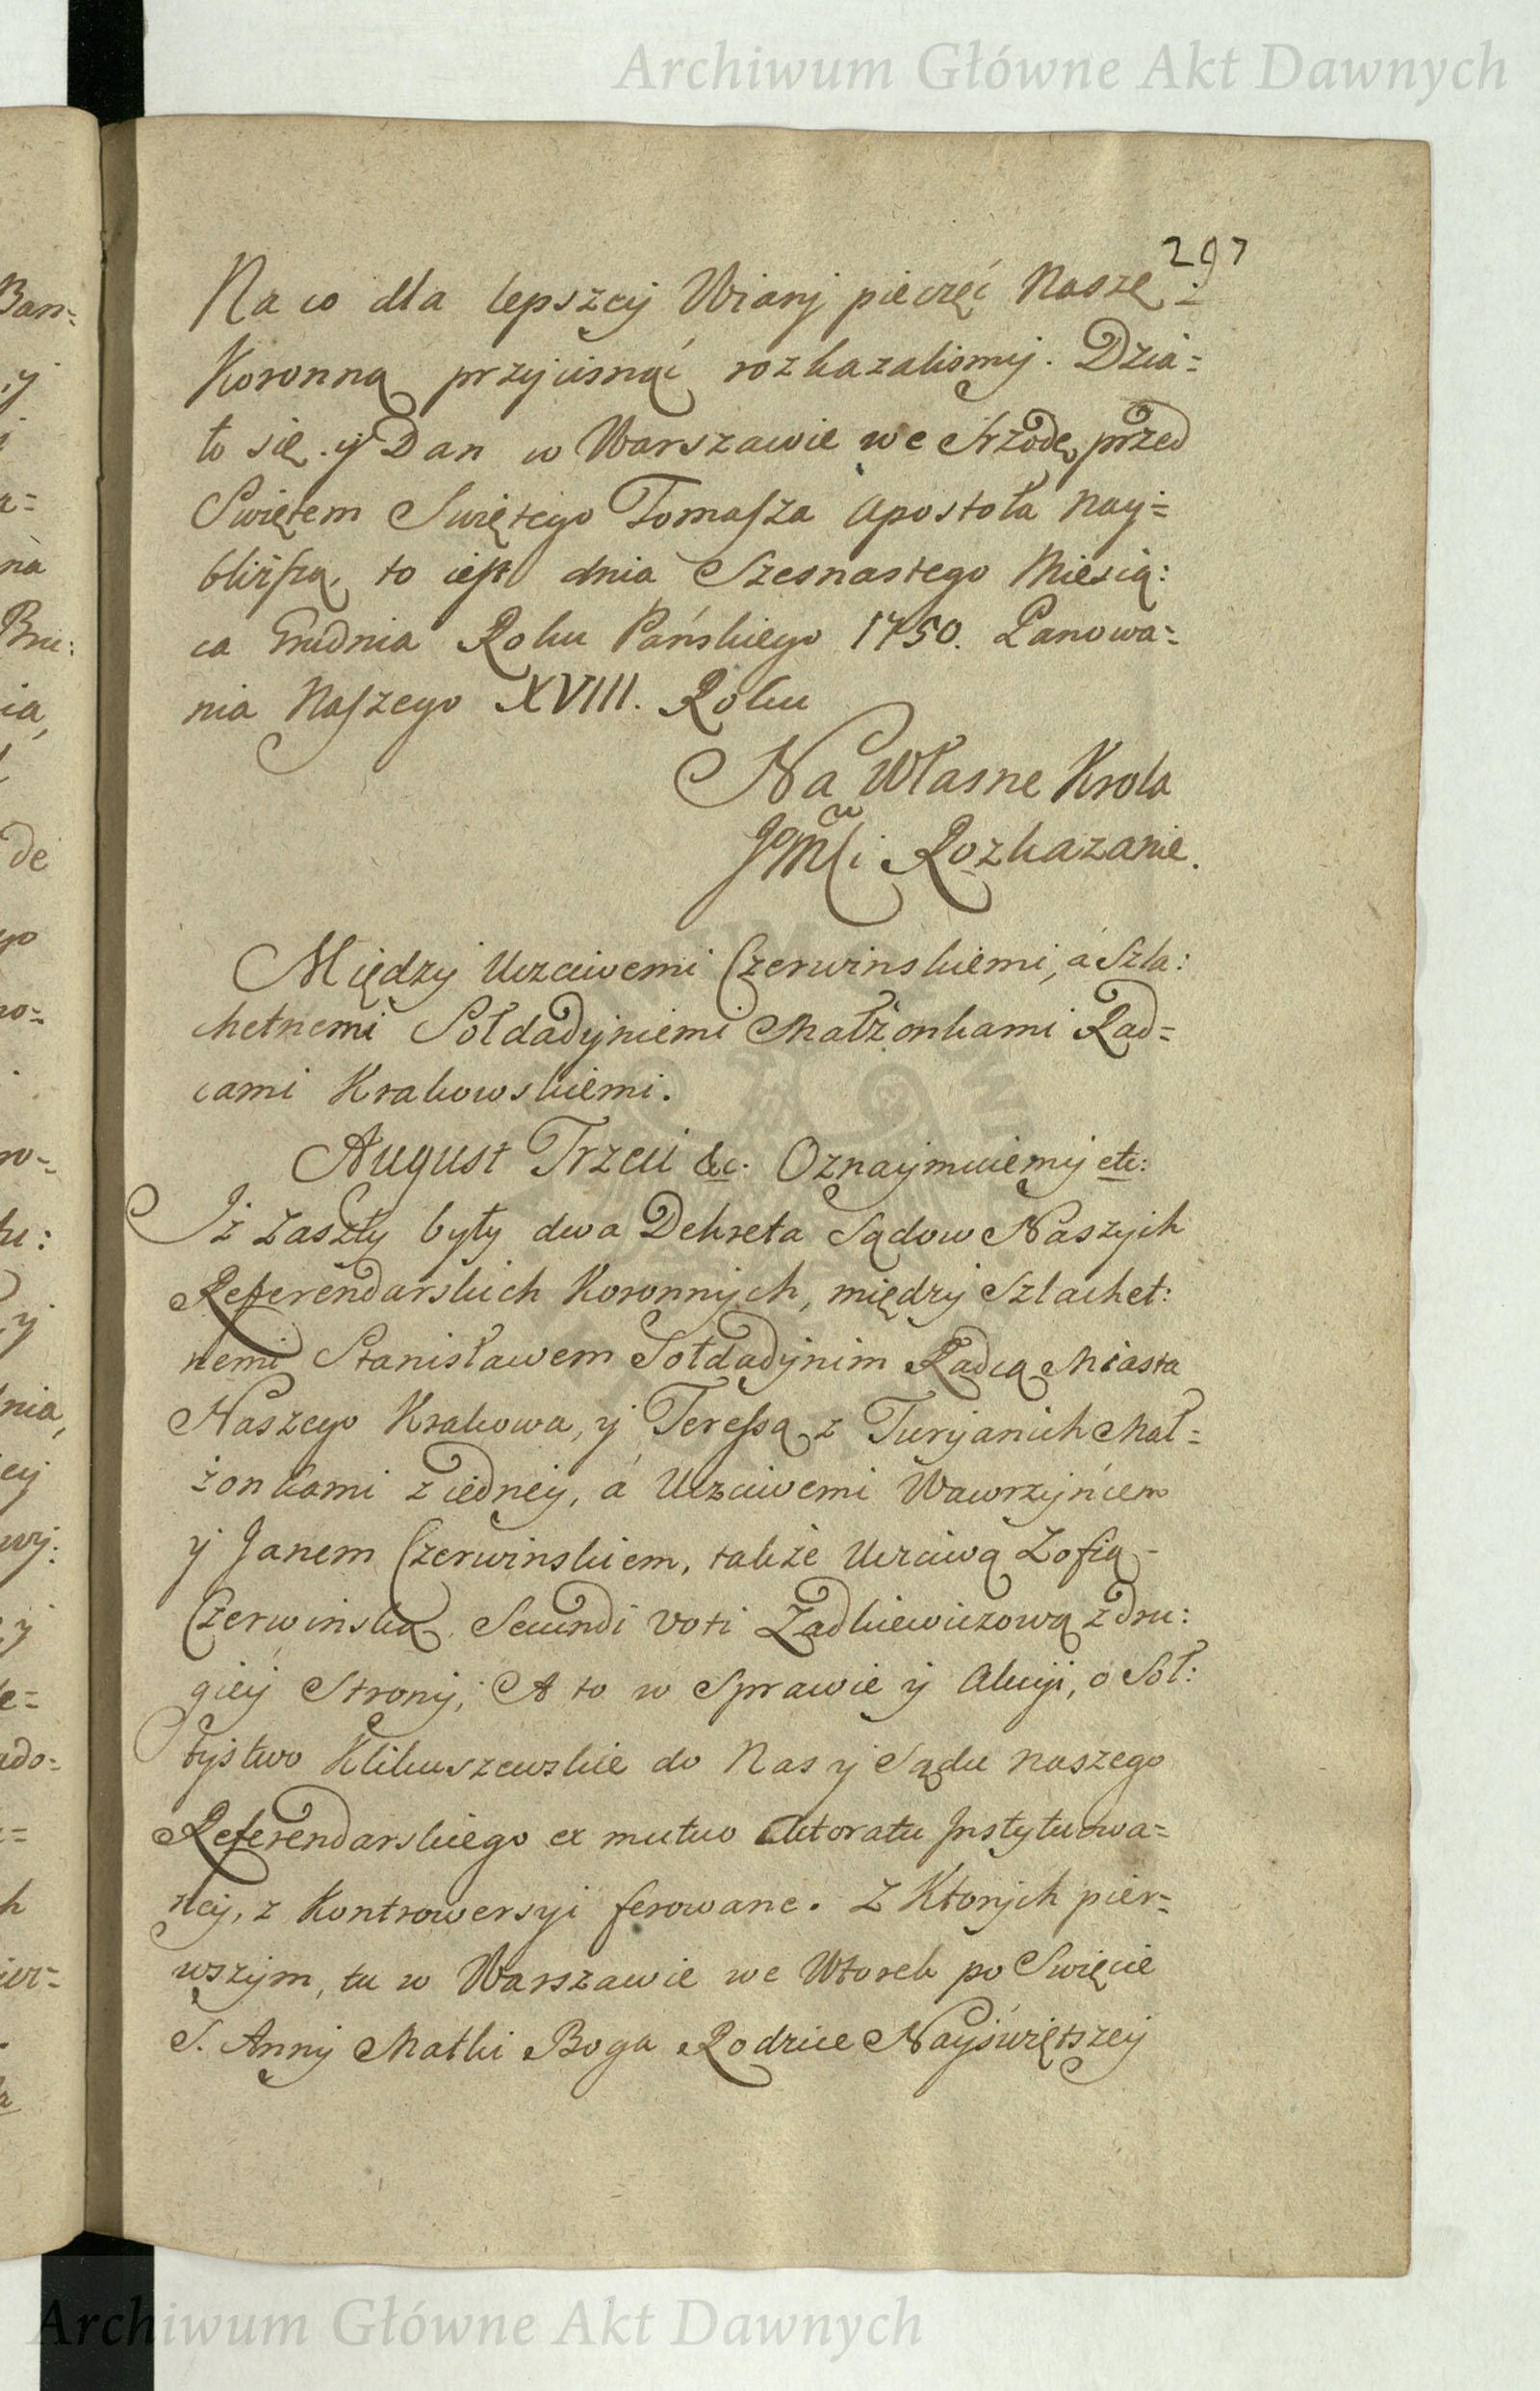 Archiwum Główne Akt Dawnych
297
Na co dla lepszey Wiary pieczęć Naszę
Koronną przycisnąć rozkazalismy. Dzia=
ło się y Dan w Warszawie we Srzodę przed
Swiętem Swiętego Tomasza Apostoła nay=
bliższą, to iest dnia Szesnastego Miesią:
ca Grudnia Roku Pańskiego 1750. Panowa=
nia Naszego XVIII. Roku
Na Własne Krola
JMści Rozkazanie.
Między Uczciwemi Czerwinskiemi, á Szla:
chetnemi Sołdadyniemi Małżonkami Rad=
cami Krakowskiemi.
August Trzeci &c. Oznaymuiemy etc:
Iż Zaszły były dwa Dekreta Sądow Naszych
Referendarskich Koronnych, między Szlachet:
nemi Stanisławem Sołdadynim Radcą Miasta
Naszego Krakowa, y Teressą z Turyanich Mał=
żonkami z iedney, á Uczciwemi Wawrzyńcem
y Janem Czerwinskiem, także Uczciwą Zofią
Czerwinską Secundi voti Zadkiewiczową z dru:
giey Strony; A to w Sprawie y Akcyi, o Soł:
tystwo Klikuszewskie do Nas y Sądu naszego
Referendarskiego ex mutuo Aktoratu Instytuowa=
ney, z Kontrowersyi ferowane. Z Ktorych pier=
wszym, tu w Warszawie we Wtorek po Swięcie
S. Anny Matki Boga Rodzice Nayświętszey
Archiwum Główne Akt Dawnych